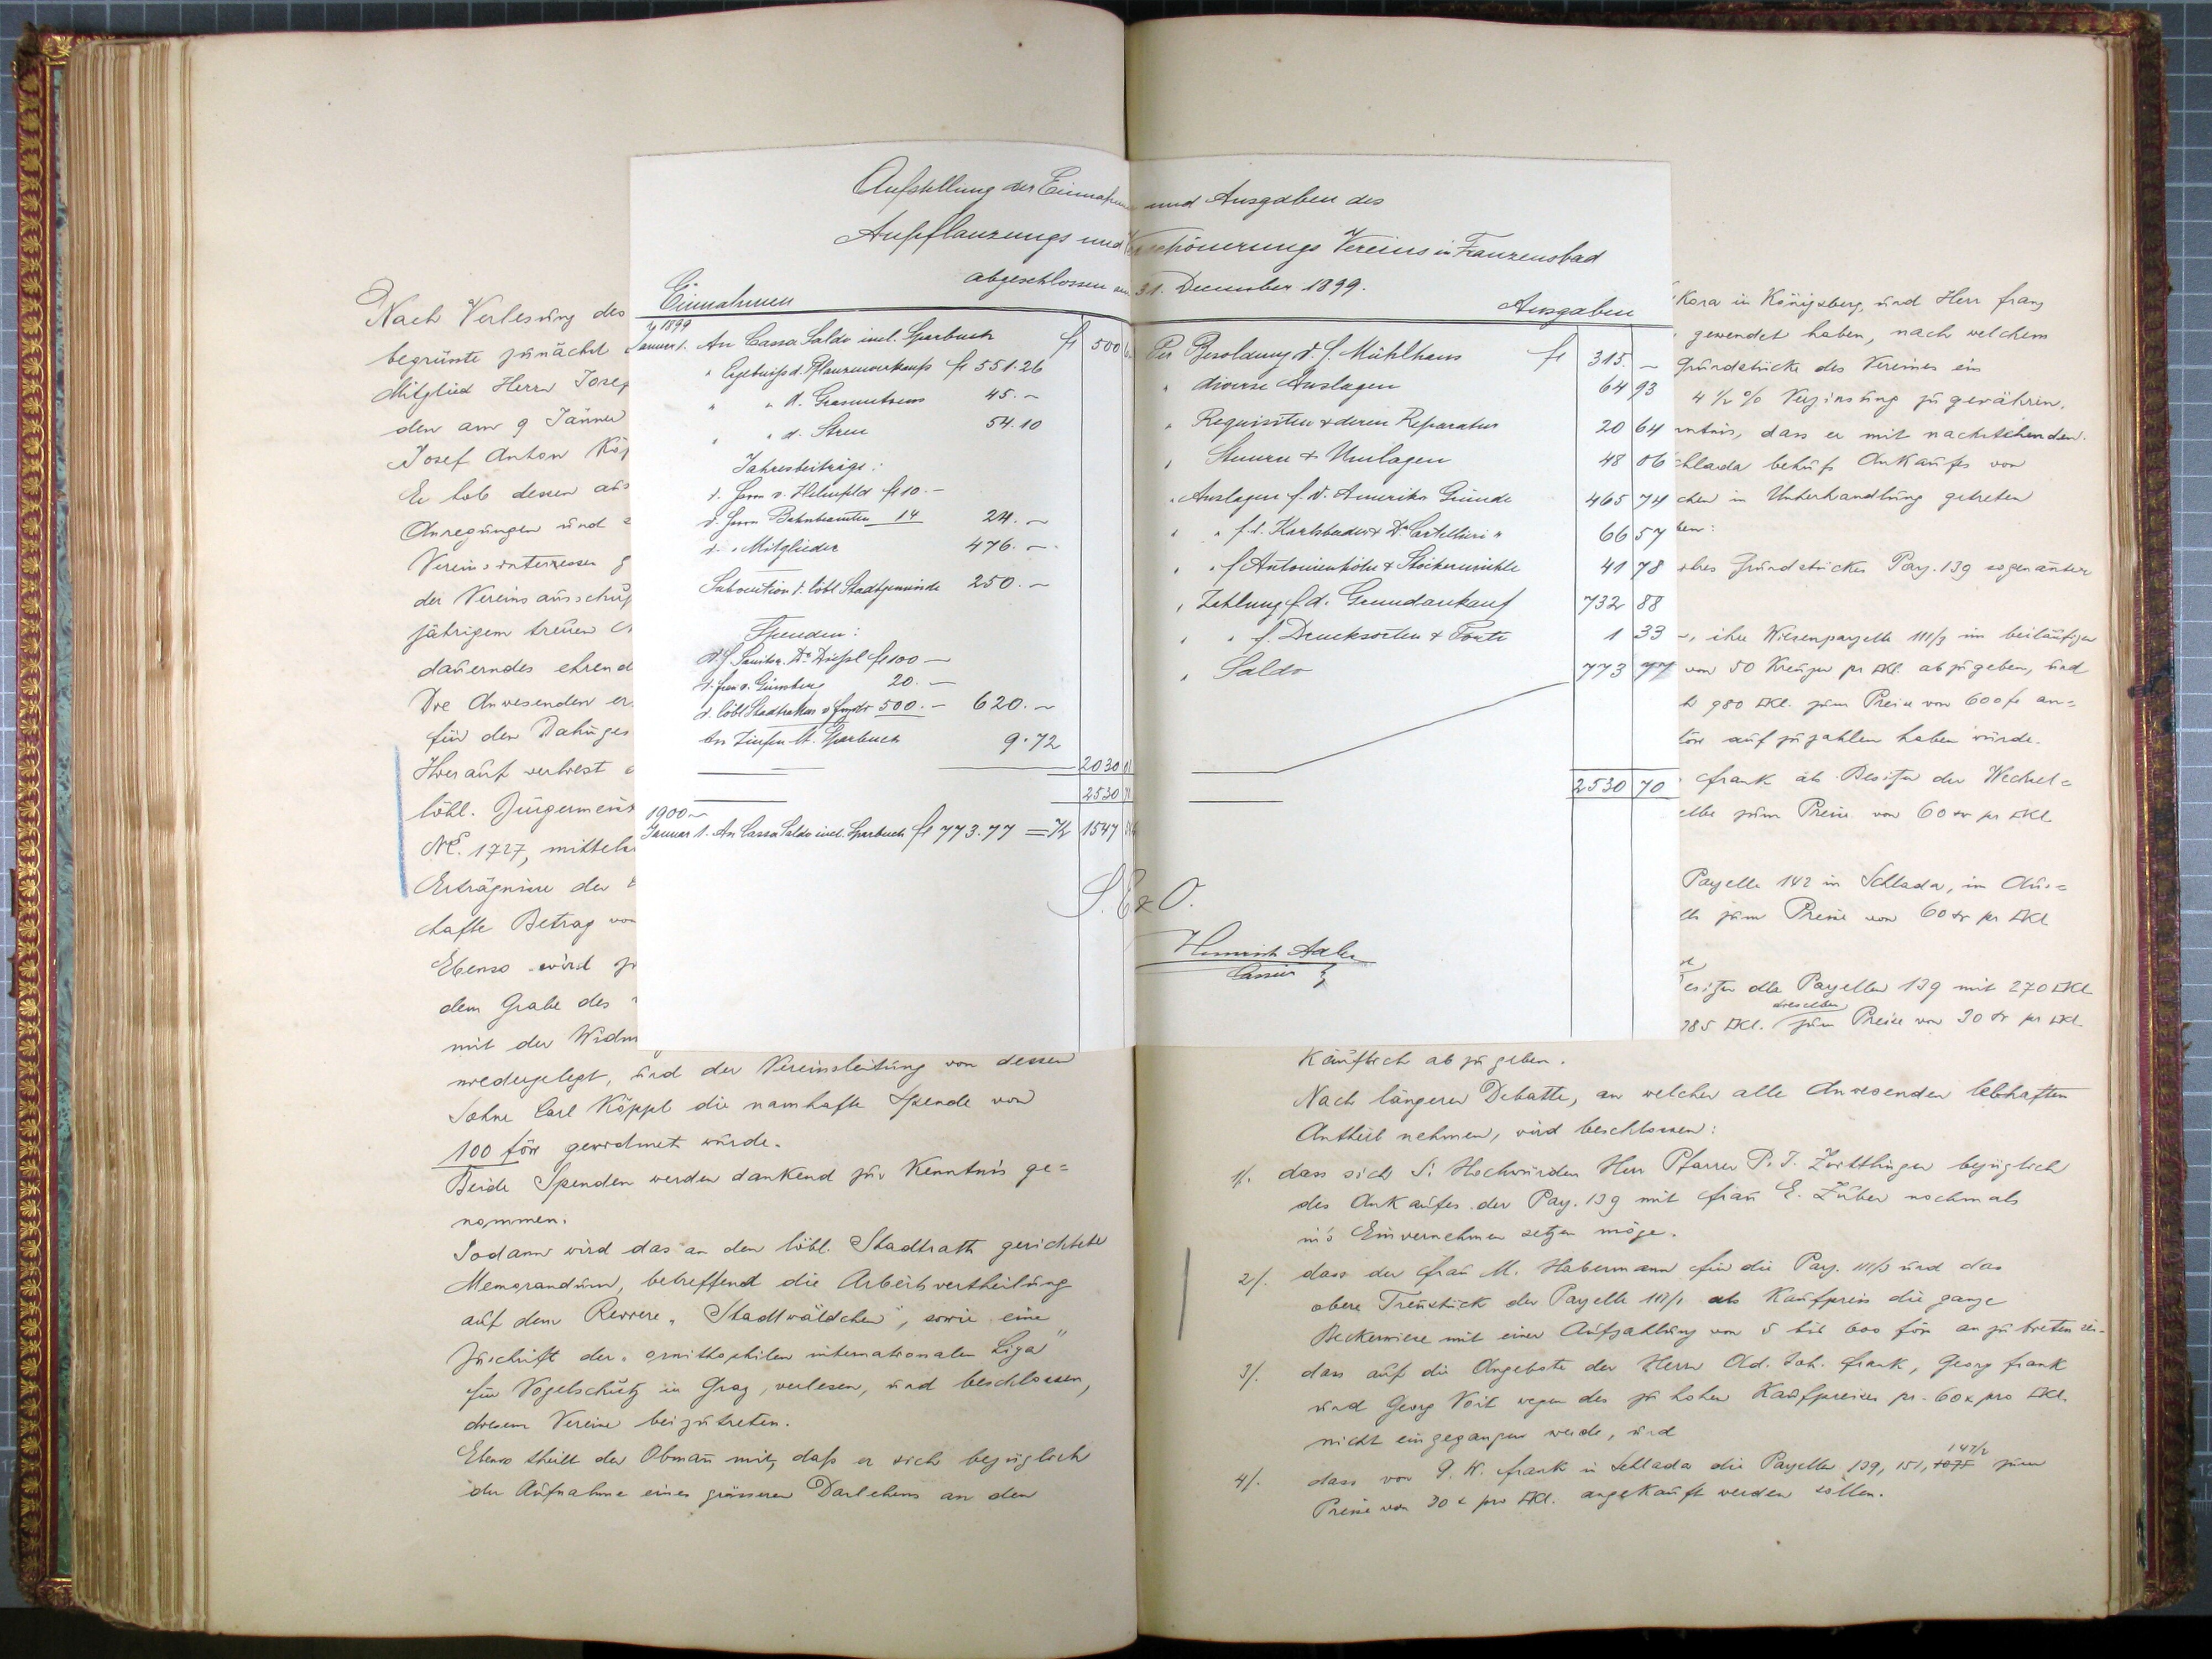 Aufstellung der Einnahmen und Ausgaben des
Anpflanzungs und Verschönerungs Vereins in Franzensbad
abgeschlossen am 31. December 1899.
Einnahmen
1899
Januar 1. An Cassa Saldo incl. Sparbuch fl 500
" Ergebniss d. Pflanzenverkaufs fl 551.26
" " d. Grasnutzens 45.-
" " d. Streu 54.10
Jahresbeiträge:
v. Herrn v. Helmfeld fl 10.-
v. Herrn Bahnbeamten 14 24.-
v. " Mitglieder 476.-
Subvention d. löbl Stadtgemeinde 250.-
Spenden:
v. H Sanitätsr. Dr Diessl fl 100-
v. Frau v. Günsberg 20.-
v. löbl Stadtrathe 500.- 620.-
An Zinsen lt. Sparbuch 9.72
2030
2530
1900
Januar 1. An Cassa Saldo incl. Sparbuch fl 773.77 = K 1547
Ausgaben
Per Besoldung d. H. Mühlhans fl 315.-
" diverse Auslagen 64 93
" Requisiten & deren Reparatur 20 64
" Steuern & Umlagen 48 06
" Auslagen f. d. Amerika Gründe 465 74
" " f. d. Karlsbader & Dr Cartellieri " 66 57
" " f Antonienhöhe & Stöckermühle 41 78
" Zahlung f. d. Grundankauf 732 88
" " f. Drucksorten & Porti 1 33
" Saldo 773 77
2530 70
S. E & O.
Heinrich Adler
Cassier
Nach Verlesung des
begrüsste zunächst
Mitglied Herrn Josef
den am 9 Jänner
Josef Anton Köp
Er hob dessen
Anregungen und
Vereinsinteressen g
der Vereinsausschuss
jährigem treuen
dauerndes ehrend
Die Anwesenden er
für den Dahinges
Hierauf verliest
löbl. Bürgermeist
NE. 1727, mittels
Erträgnisse der
hafte Betrag von
Ebenso wird
dem Grabe des
mit der Widm
niedergelegt, und der Vereinsleitung von dessen
Sohne Carl Köppl die namhafte Spende von
100 fön gewidmet wurde.
Beide Spenden werden dankend zur Kenntnis ge=
nommen.
Sodann wird das an den löbl. Stadtrath gerichtete
Memorandum, betreffend die Arbeitsvertheilung
auf dem Reviere "Stadtwäldchen", sowie eine
Zuschrift der "ornithophilen internationalen Liga"
für Vogelschutz in Graz, verlesen, und beschlossen,
diesem Vereine beizutreten.
Ebenso theilt der Obmañ mit, daß er sich bezüglich
der Aufnahme eines grösseren Darlehens an den
Kora in Königsberg, und Herr Franz
gewendet haben, nach welchem
Grundstücke des Vereines ein
4 ½ % Verzinsung zu gewähren.
nntnis, dass er mit nachstehenden
chlada behufs Ankaufes von
chen in Unterhandlung getreten
ben:
ihres Grundstückes Parz. 139 sogenanter
, ihre Wiesenparzelle 111/3 im beiläufigen
von 50 Kreuzer pr □Kl. abzugeben, und
980 □Kl. zum Preise von 600 fl an=
fön aufzuzahlen haben würde.
Frank als Besitzer der Wechsel=
elbe zum Preise von 60 xr pr □Kl
Parzelle 142 in Schlada, im Aus=
zum Preise von 60 xr pr □Kl
esitzer der Parzellen 139 mit 270 □Kl
dieselben
785 □Kl. zum Preise von 30 xr pr □Kl
Käuflich abzugeben.
Nach längerer Debatte, an welcher alle Anwesenden lebhaften
Antheil nehmen, wird beschlossen:
1/. dass sich S: Hochwürden Herr Pfarrer P. J. Zwittlinger bezüglich
des Ankaufes der Parz. 139 mit Frau E. Züber nochmals
in's Einvernehmen setzen möge.
2/. dass der Frau M. Habermann für die Parz. 111/3 und das
obere Trenstück der Parzelle 111/1 als Kaufpreis die ganze
Beckerwiese mit einer Aufzahlung von 5 bis 600 fön anzubieten sei.
3/. dass auf die Angebote der Herrn Ad. Joh. Frank, Georg Frank
und Georg Voit wegen des zu hohen Kaufpreises pr. 60 x pro □Kl.
nicht eingegangen werde, und
147/2
4/. dass von J. W. Frank in Schlada die Parzellen 139, 151, 1075 zum
Preise von 30 x pro □Kl. angekauft werden sollen.